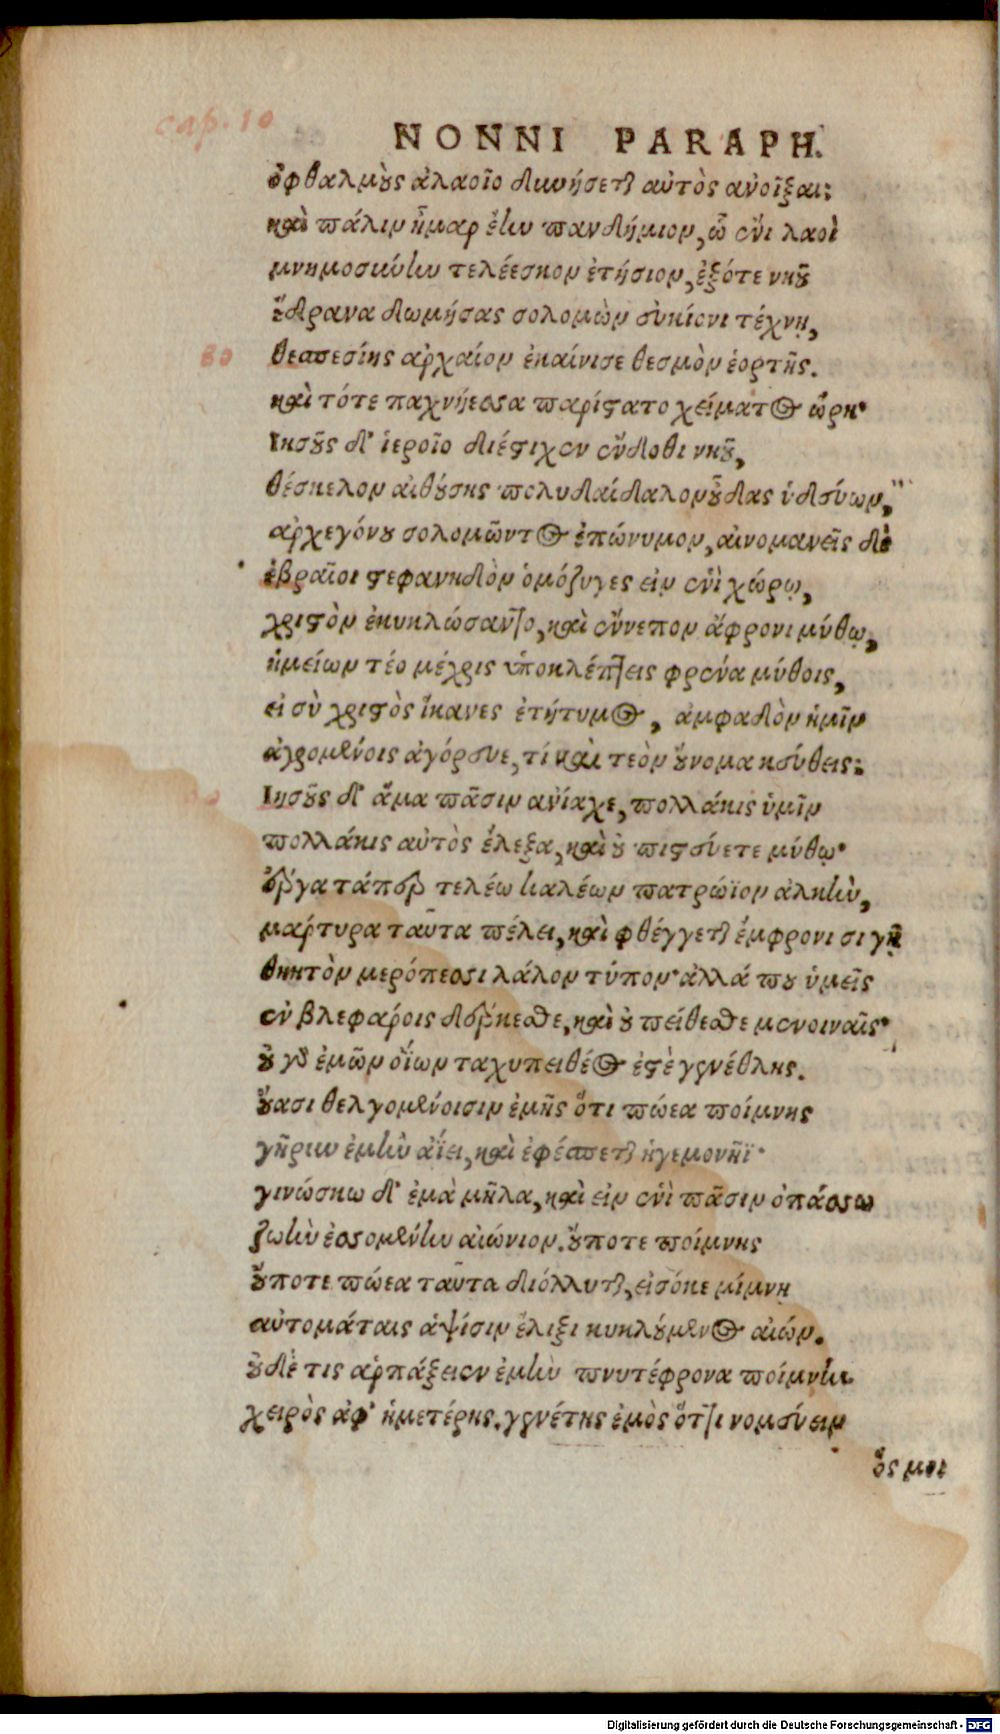 cap. 10
NONNI PARAPH.
ὀφθαλμοὺς ἀλαοῖο δυνήσεται αὐτὸς ἀνοῖξαι;
καὶ πάλιν ἦμαρ ἔην πανδήμιον, ᾧ ἔνι λαοὶ
μνημοσύνην τελέεσκον ἐτήσιον, ἐξότε νηοῦ
ἕδρανα δωμήσας σολομὼν εὐκίονι τέχνῃ,
80
θεσπεσίης ἀρχαίον ἐκαίνισε θεσμὸν ἑορτῆς.
καὶ τότε παχνήεσσα παρίστατο χείματος ὥρη·
Ἰησοῦς δ' ἱεροῖο διέστιχεν ἔνδοθι νηοῦ,
θέσκελον αἰθούσης πολυδαίδαλον οὖδας ὁδεύων,
ἀρχεγόνου σολομῶντος ἐπώνυμον, αἰνομανεῖς δὲ
ἑβραῖοι στεφανηδὸν ὁμόζυγες εἰν ἑνὶ χώρῳ,
χριστὸν ἐκυκλώσαντο, καὶ ἔννεπον ἄφρονι μύθῳ,
ἡμείων τέο μέχρις ὑποκλέπτεις φρένα μύθοις,
εἰ σὺ χριστὸς ἵκανες ἐτήτυμος, ἀμφαδὸν ἡμῖν
ἀχρομένοις ἀγόρευε, τί καὶ τεὸν οὔνομα κεύθεις;
Ἰησοῦς δ' ἅμα πᾶσιν ἀνίαχε, πολλάκις ὑμῖν
πολλάκις αὐτὸς ἔλεξα, καὶ οὐ πιστεύετε μύθῳ·
ἔργα τάπερ τελέω καλέων πατρώϊον ἀλκὴν,
μάρτυρα ταῦτα πέλει, καὶ φθέγγεται ἔμφρονι σιγῇ
θνητὸν μερόπεσσι λάλον τύπον· ἀλλά που ὑμεῖς
ἐν βλεφάροις δέρκεσθε, καὶ οὐ πείθεσθε μενοιναῖς·
οὐ γὰρ ἐμῶν ὀΐων ταχυπειθέος ἐστὲ γενέθλης.
οὔασι θελγομένοισιν ἐμῆς ὅτι πώεα ποίμνης
γῆρυν ἐμὴν ἀΐει, καὶ ἐφέσπεται ἡγεμονῆϊ·
γινώσκω δ' ἐμὰ μῆλα, καὶ εἰν ἑνὶ πᾶσιν ὀπάσσω
ζωὴν ἐσσομένην αἰώνιον. οὔποτε ποίμνης
οὔποτε πώεα ταῦτα διόλλυται, εἰσόκε μίμνῃ
αὐτομάταις ἁψίσιν ἕλιξι κυκλούμενος αἰών.
οὐδέ τις ἁρπάξειεν ἐμὴν πνυτέφρονα ποίμνην
χειρὸς ἀφ' ἡμετέρης. γενέτης ἐμὸς ὅττι νομεύειν
ὅς μοι
Digitalisierung gefördert durch die Deutsche Forschungsgemeinschaft - DFG